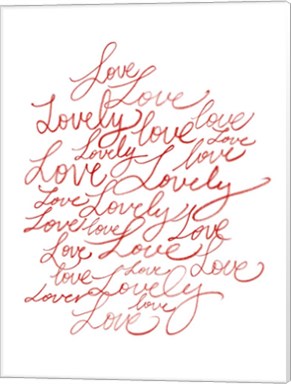 Love
Love
Lovely love love
Lovely love Love
Love Lovely
Love Lovely
Love love Love
Love Love Love
love Love
Lover Lovely
Love love